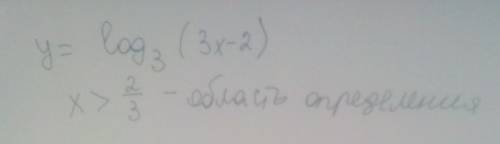 y = log₃ (3x-2)
x > 2/3 - область определения